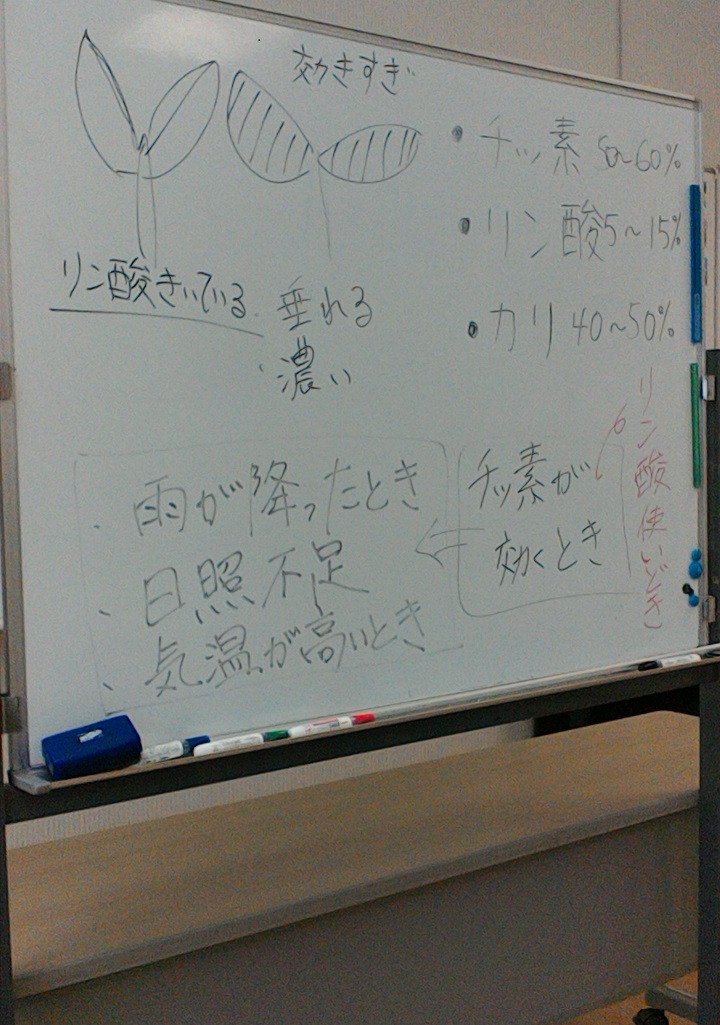 効きすぎ
・チッ素 50~60%
・リン酸 5~15%
・カリ 40~50%
リン酸きいている
垂れる
濃い
チッ素が
効くとき
リン酸使いどき
・雨が降ったとき
・日照不足
・気温が高いとき